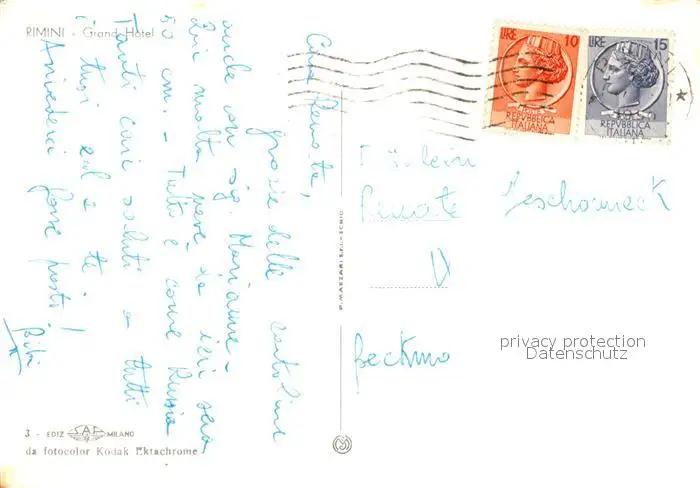 RIMINI - Grand Hotel
Cara Renate,
grazie delle cartoline
anche con sig. Marianne -
Qui molta neve da ieri sera
50 cm. - Tutto è come Russia
Tanti cari saluti a tutti
i tuoi ed a te
Arrivederci forse presto!
3 - EDIZ SAF MILANO
da fotocolor Kodak Ektachrome
P. MARZARI S.R.L. - SCHIO
LIRE 10
REPVBBLICA
ITALIANA
LIRE 15
REPVBBLICA
ITALIANA
Fräulein
Renate Jeschonneck
privacy protection
Datenschutz